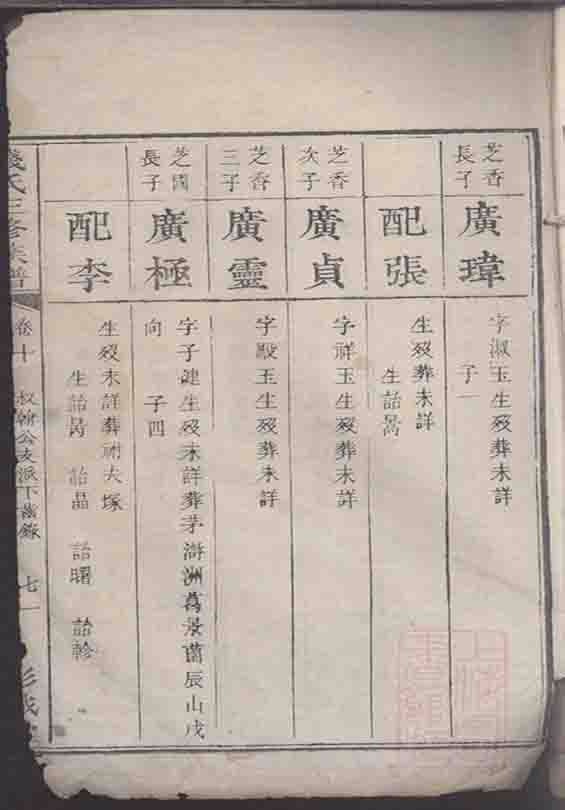 芝香
長子
廣瑋
字淑玉生歿葬未詳
子一
配張
生歿葬未詳
生詒暠
芝香
次子
廣貞
字祥玉生歿葬未詳
芝香
三子
廣靈
字毀玉生歿葬未詳
芝圃
長子
廣極
字子建生歿未詳葬茅滸洲萬景菌辰山戌
向 子四
配李
生歿未詳葬祔大塚
生詒暠 詒晶 詒曙 詒
氏三修族譜
卷十 叔翰公支派下齒錄 七一